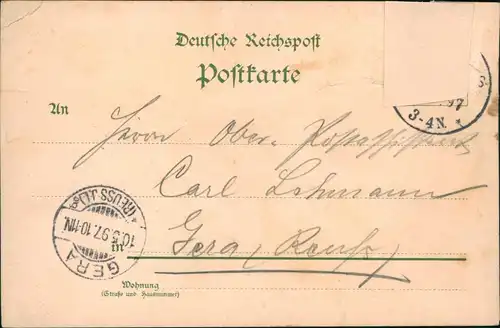 Deutsche Reichspost
Postkarte
97
3-4N.
An
Herrn Ober-
Carl Lehmann
(REUSS J.L)
10.5.97.10-11N.
GERA
in
Gera (Reuß)
Wohnung
(Straße und Hausnummer)